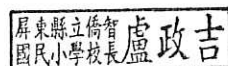 屏東縣立僑智
國民小學校長
盧政吉